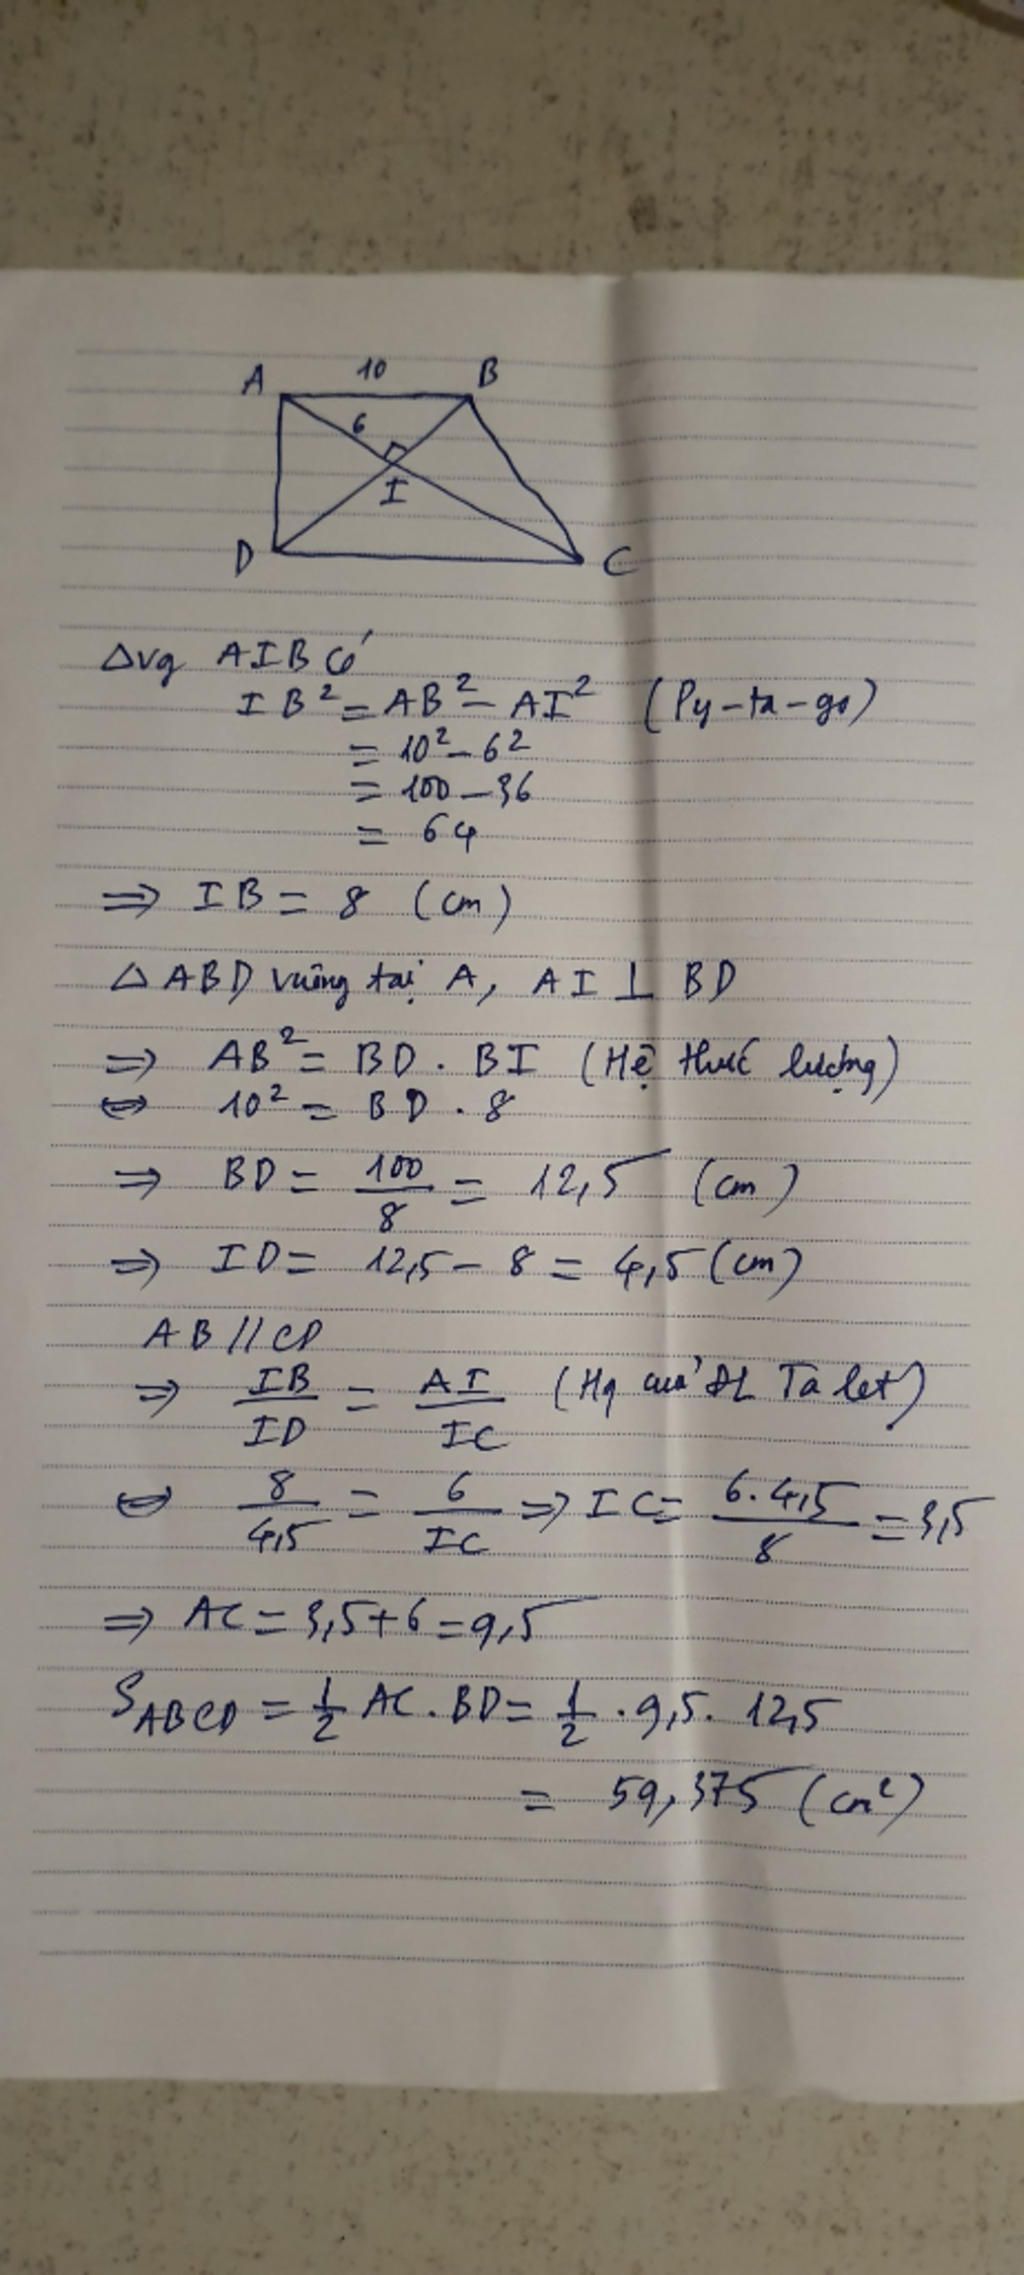 A 10 B
6
I
D C
Δvg AIB có
IB² = AB² - AI² (Py-ta-go)
= 10² - 6²
= 100 - 36
= 64
⇒ IB = 8 (cm)
Δ ABD vuông tại A, AI ⊥ BD
⇒ AB² = BD . BI (Hệ thức lượng)
⇔ 10² = BD . 8
⇒ BD = 100/8 = 12,5 (cm)
⇒ ID = 12,5 - 8 = 4,5 (cm)
AB // CD
⇒ IB/ID = AI/IC (Hq của ĐL Ta let)
⇔ 8/4,5 = 6/IC ⇒ IC = 6.4,5/8 = 3,5
⇒ AC = 3,5+6 = 9,5
S_ABCD = 1/2 AC . BD = 1/2 . 9,5 . 12,5
= 59,375 (cm²)